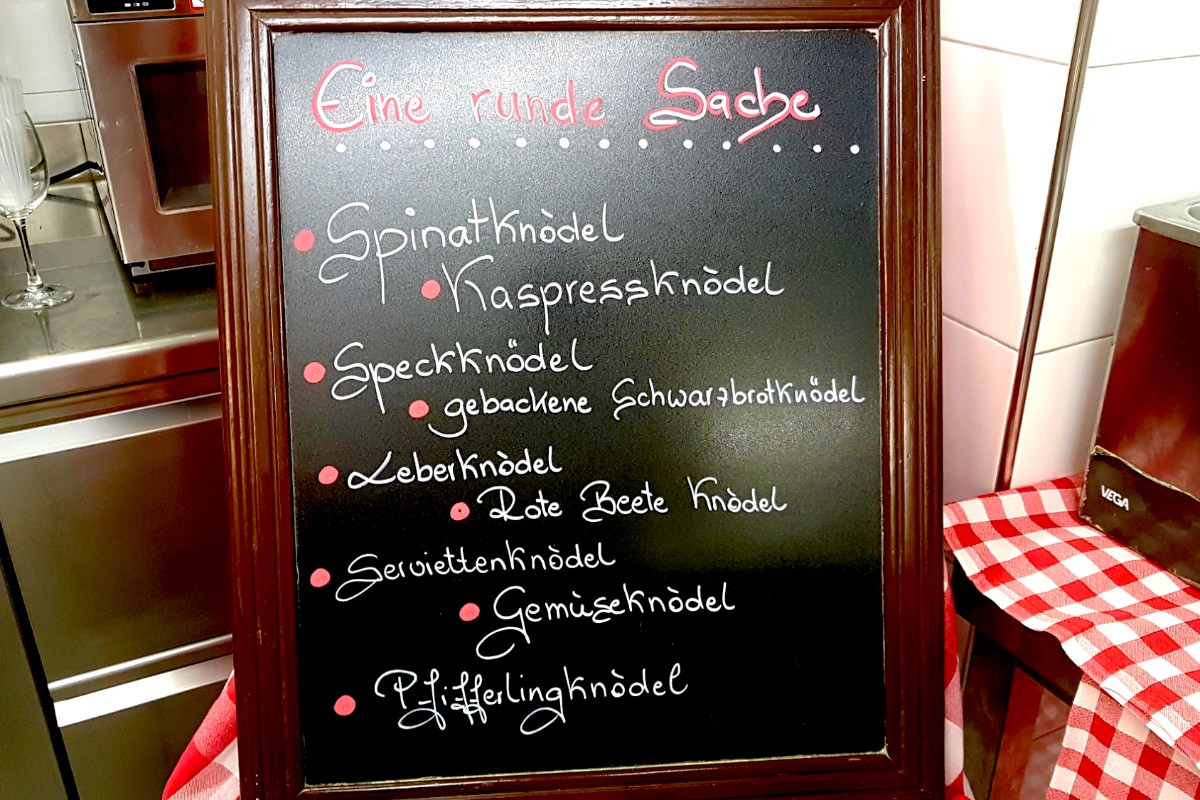 Eine runde Sache
Spinatknòdel
Kaspressknòdel
Speckknödel
gebackene Schwarzbrotknödel
Leberknòdel
Rote Beete Knòdel
Serviettenknòdel
Gemùseknòdel
Pfifferlingknòdel
VEGA